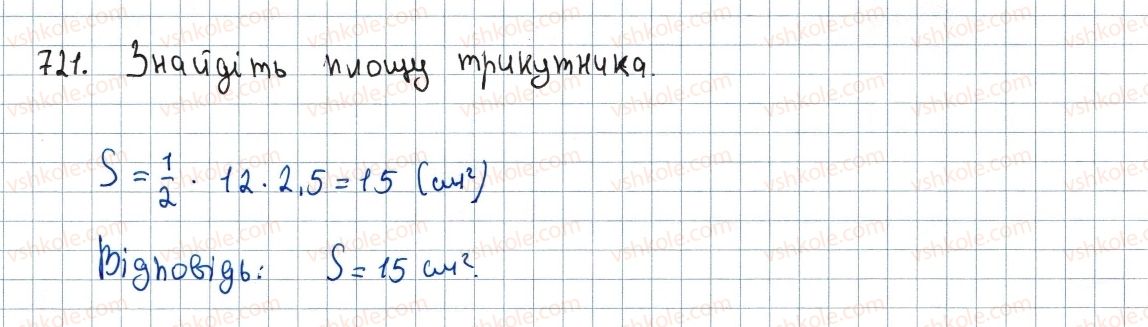 721. Знайдіть площу трикутника.
S = 1/2 · 12 · 2,5 = 15 (см²)
Відповідь: S = 15 см².